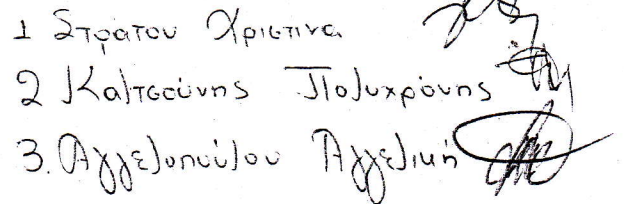 1 Στρατου Χριστινα
2 Καλτσούνης Πολυχρόνης
3. Αγγελοπούλου Αγγελική